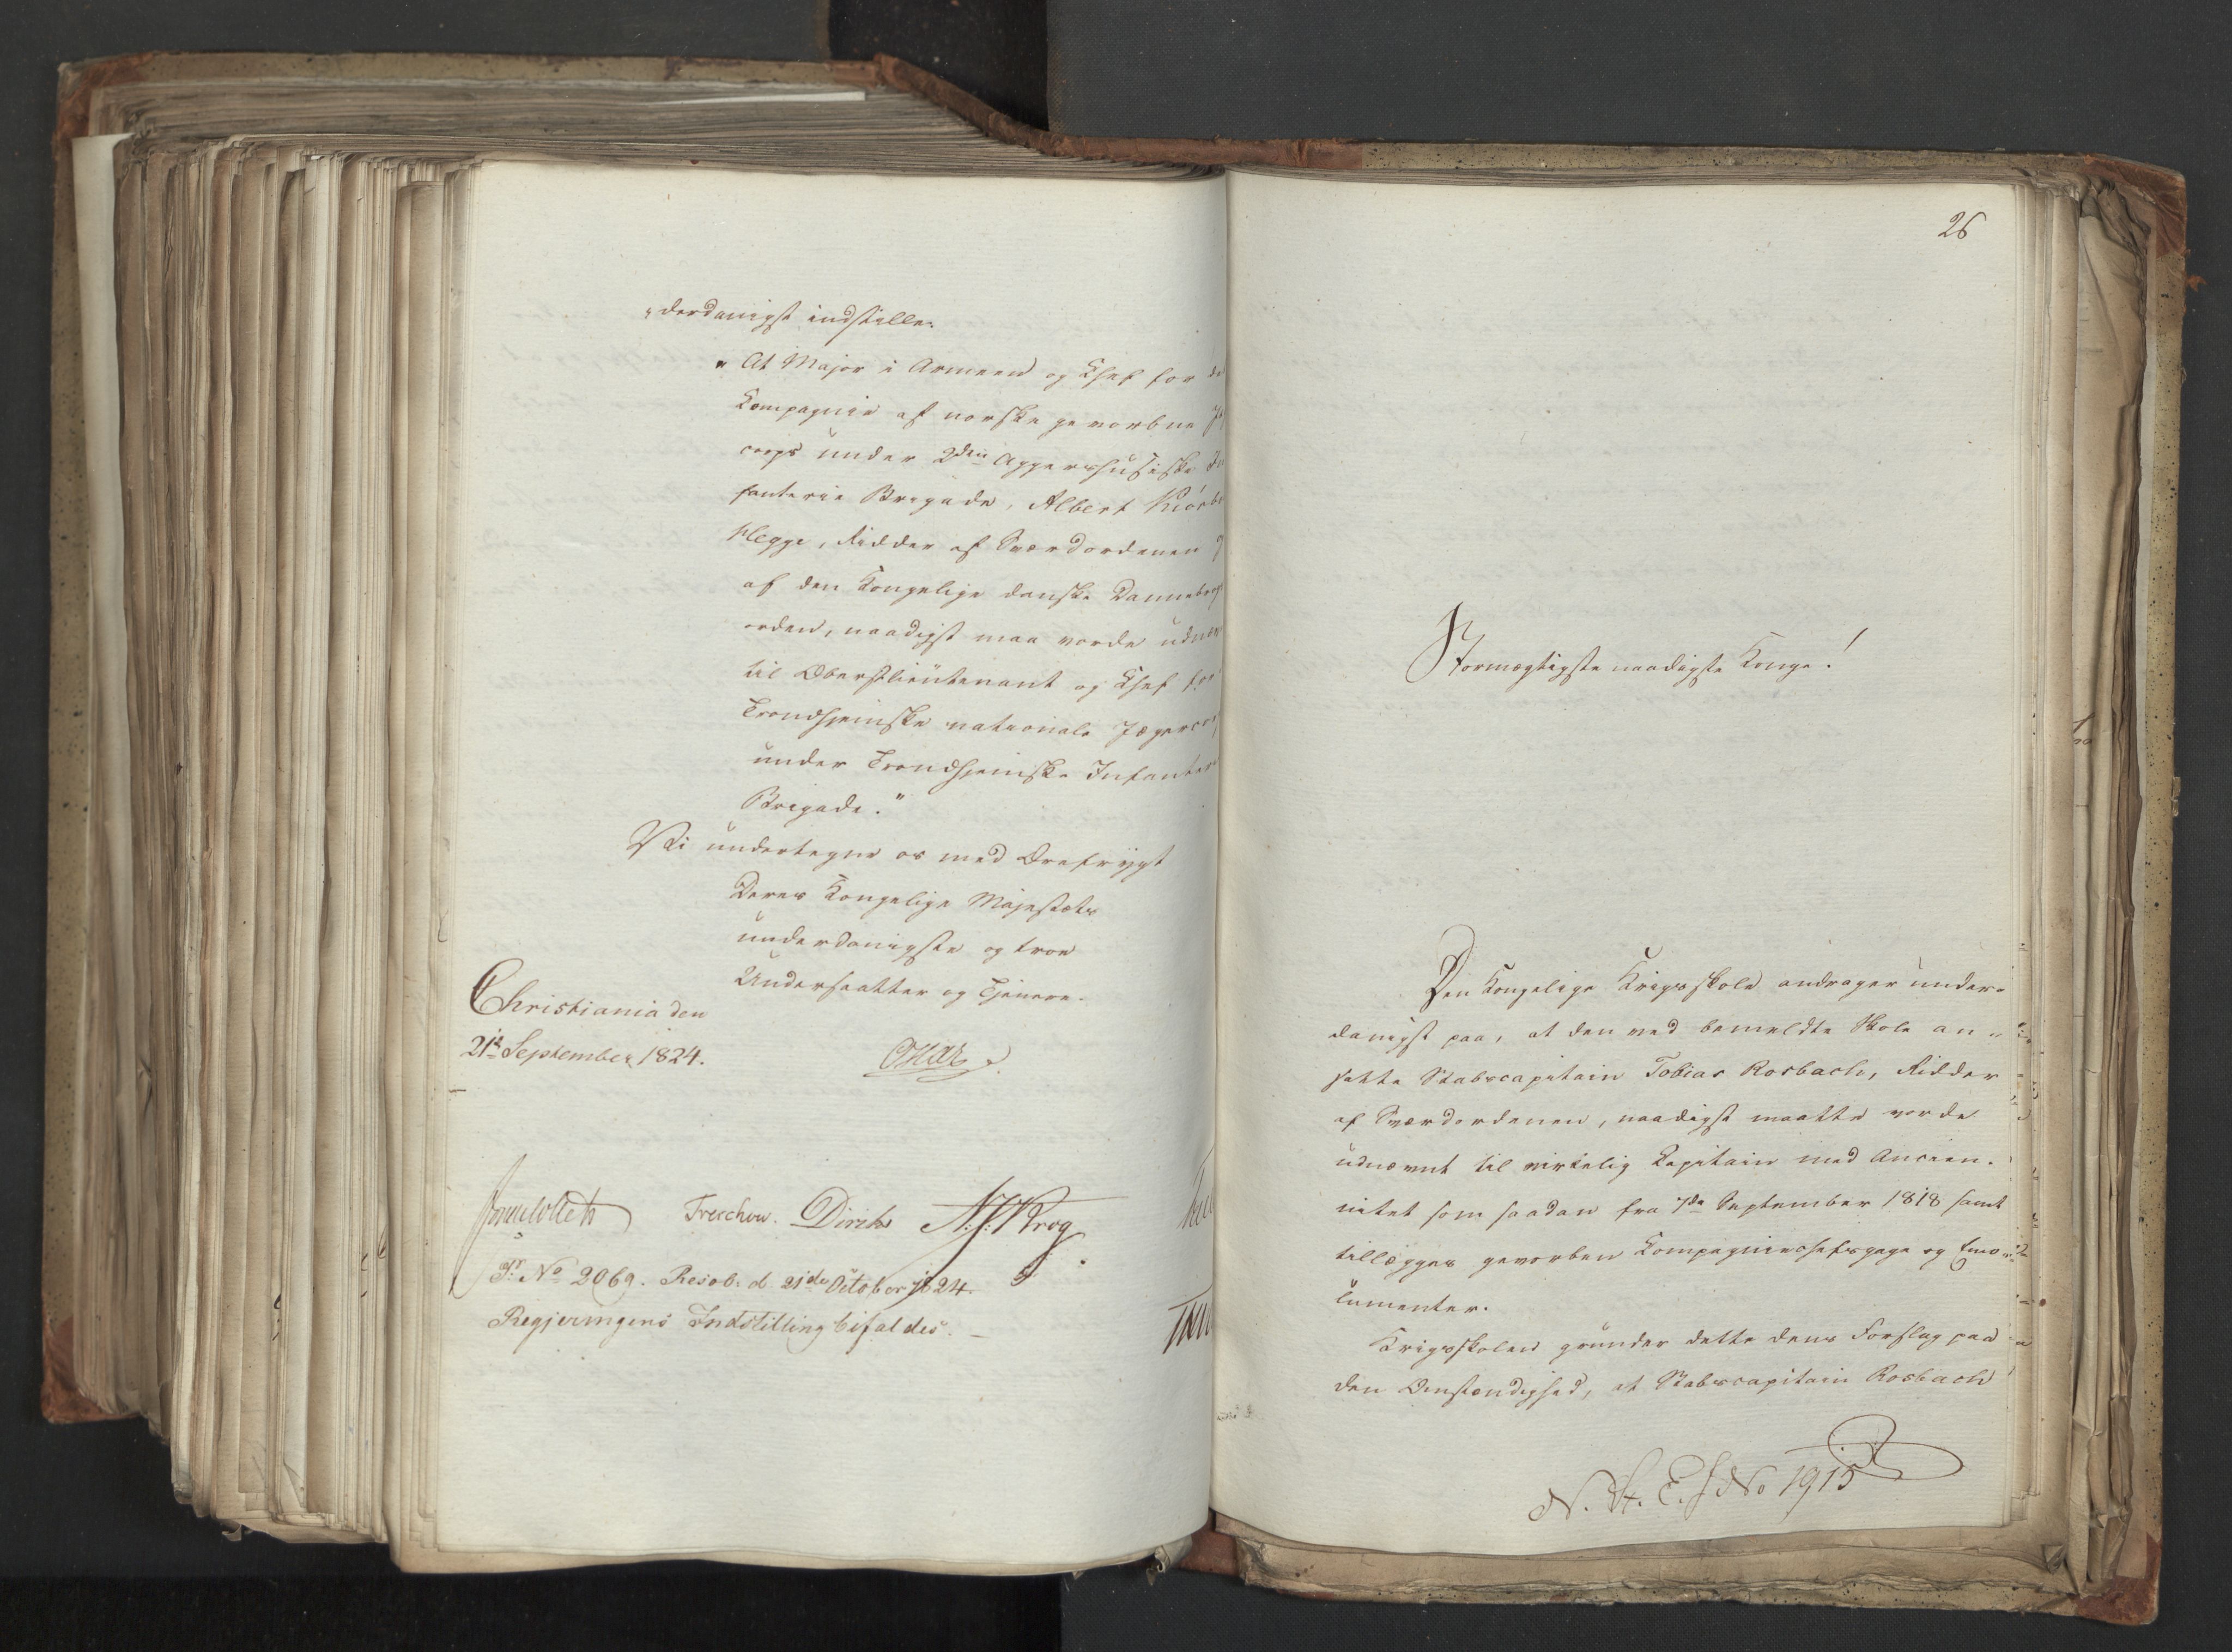 "derdanigst indstille:
" At Major i Armeen og Chef for de
Compagnie af norske gevorbne Jæ
corps under 2den Aggershusiske In
fanterie Brigade, Albert
Hegge, Ridder af Sværdordenen o
af den Kongelige danske Dannebrogs
orden, naadigst maa vorde udnæv
til Oberstlieutenant og Chef for
Trondhjemske nationale Jægerco
under Trondhjemske Infanteri
Brigade."
Vi undertegne os med Ærefrygt
Deres Kongelige Majestæts
underdanigste og troe
Undersaatter og Tjenere.
Christiania den
21de September 1824.
Treschow. Diriks Krog
Pr. No 2069. Resol: d. 21de October 1824.
Regjeringens Indstilling bifaldes. —
26
Stormægtigste naadigste Konge!
Den Kongelige Krigsskole andrager under=
danigst paa, at den ved bemeldte Skole an=
satte Stabscapitain Tobias Rosbach, Ridder
af Sværdordenen, naadigst maatte vorde
udnævnt til virkelig Capitain med Ancien=
nitet som saadan fra 7de September 1818 samt
tillægges gevorben Compagniechefsgage og Emo=
lumenter.
Krigsskolen grunder dette dens Forslag paa
den Omstændighed, at Stabscapitain Rosbach
N. St. E. J No 1915